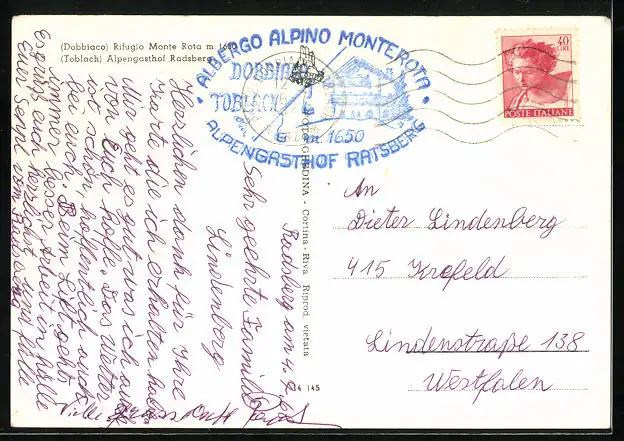 (Dobbiaco) Rifugio Monte Rota m 1650
(Toblach) Alpengasthof Radsberg
ALBERGO ALPINO MONTEROTA
DOBBIACO
TOBLACH
m. 1650
ALPENGASTHOF RATSBERG
40
LIRE
POSTE ITALIANE
GHEDINA - Cortina - Riva Riprod. vietata
14 145
An
Dieter Lindenberg
415 Krefeld
Lindenstraße 138
Westfalen
Radsberg am 4.
Sehr geehrte Familie
Lindenberg
Herzlichen dank für Ihre
Karte die ich erhalten habe
Mir geht es gut was ich auch
von Euch hoffe. Das Wetter
ist schön, hoffentlich auch
bei euch. Beim Lift geht's
immer besser Arbeit in Hülle
Es grüßt euch herzlichst
Euer Sepp vom Radsberg
Viele Grüsse